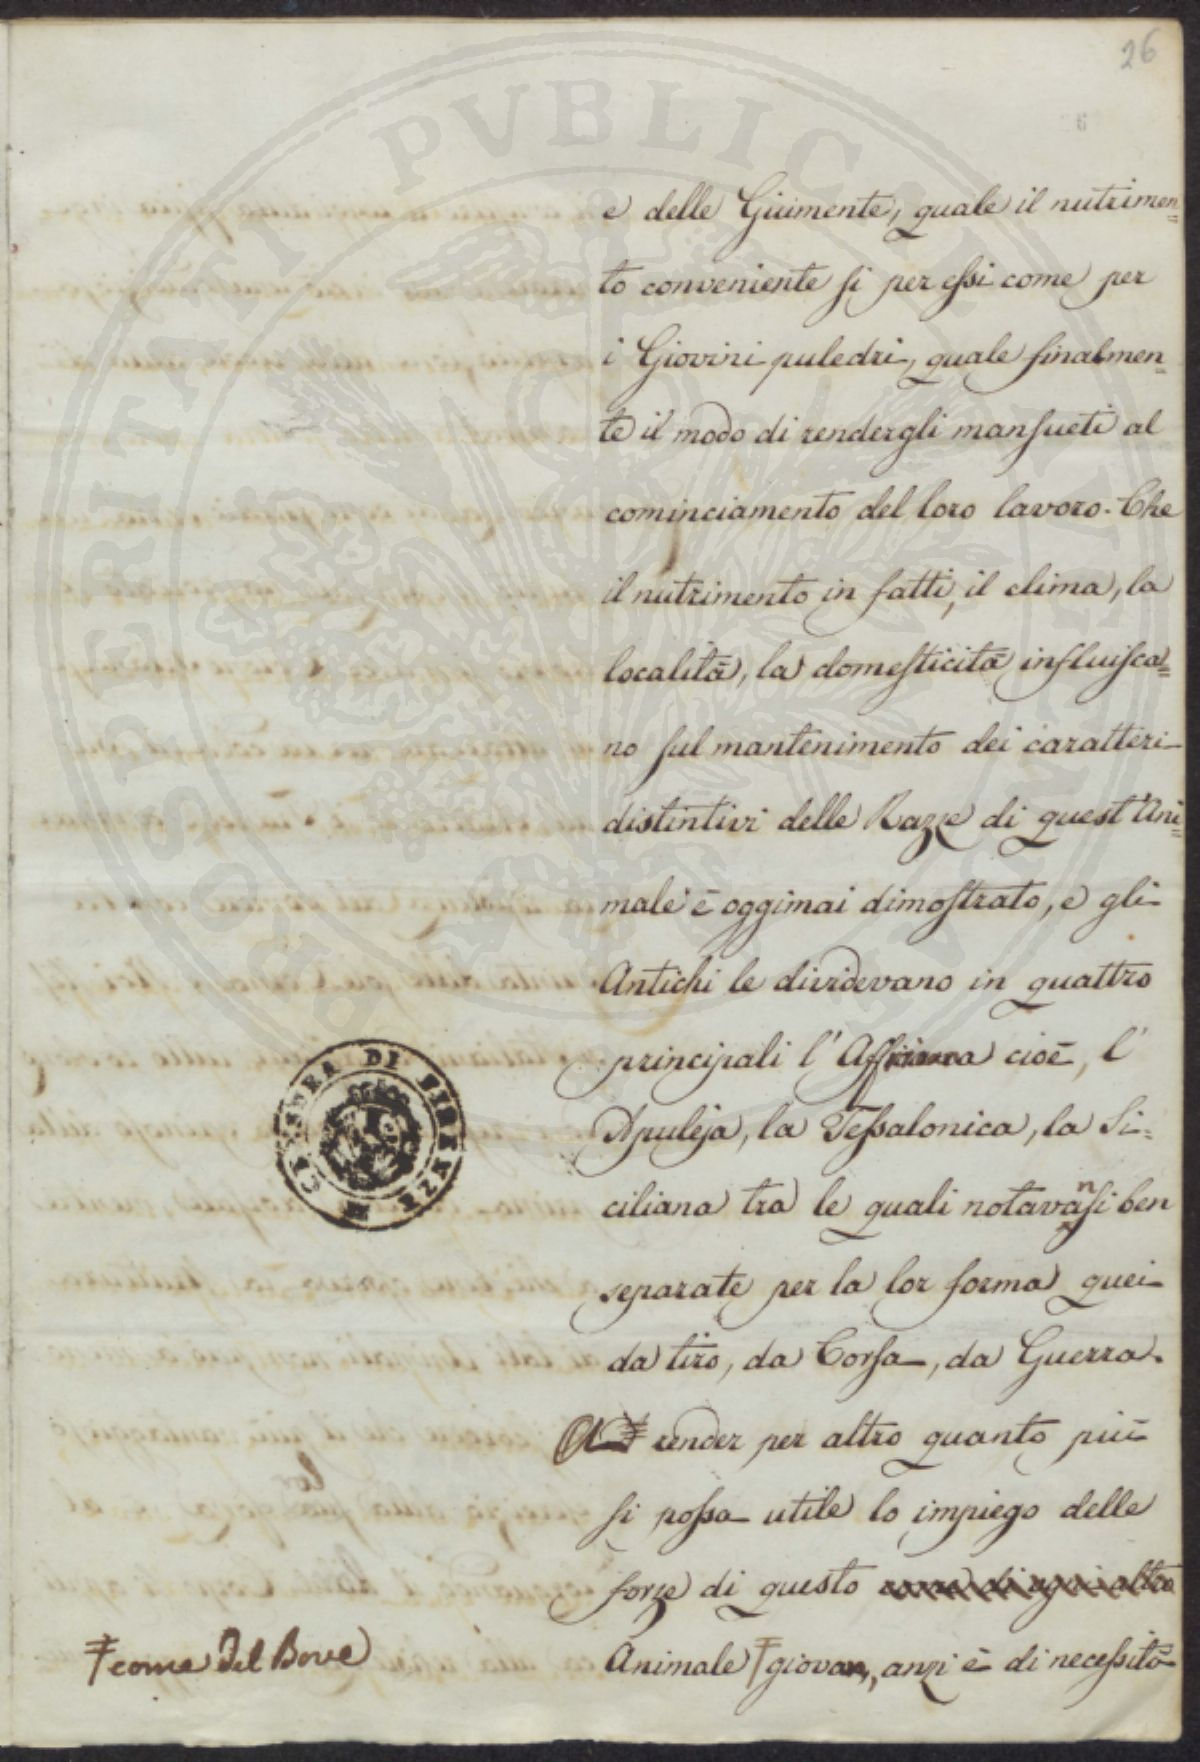 26
e delle Giumente, quale il nutrimen=
to conveniente si per essi come per
i Giovini puledri, quale finalmen=
te il modo di rendergli mansueti al
cominciamento del loro lavoro. Che
il nutrimento in fatti, il clima, la
località, la domesticità influisca=
no sul mantenimento dei caratteri
distintivi delle Razze di quest'Ani=
male è oggimai dimostrato, e gli
Antichi le dividevano in quattro
principali l' cioè, l'
Apuleja, la Tessalonica, la Si=
ciliana tra le quali notavansi ben
separate per la lor forma quei
da tiro, da Corsa, da Guerra.
A render per altro quanto più
si possa utile lo impiego delle
forze di questo come di ogni altro
Animale ǂ giovan, anzi è di necessità
ǂ come del Bove
PROSPERITATI PVBLICAE AVGENDAE
CENSURA DI FIRENZE